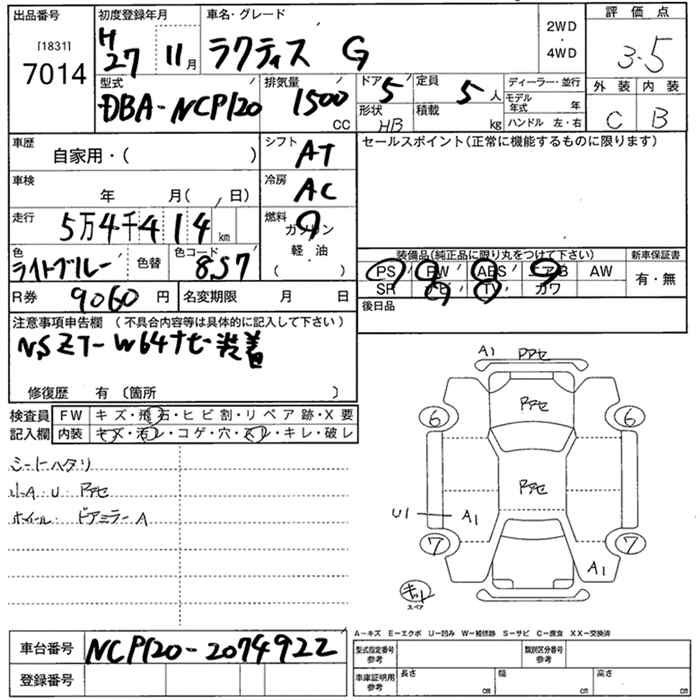 出品番号 初度登録年月 車名・グレード 2WD ・ 4WD 評価点
[1831] 7014 H27 11月 ラクティス G 3.5
型式 排気量 ドア 5 定員 5人 ディーラー・並行 外装 内装
DBA-NCP120 1500 CC 形状 HB 積載 kg モデル年式 年 C B
ハンドル 左・右
車歴 自家用・( ) シフト AT セールスポイント(正常に機能するものに限ります)
車検 年 月( 日) 冷房 AC
走行 5万4千414km 燃料 ガソリン
軽油
( )
色 ライトブルー 色替 色コード 8S7
装備品(純正品に限り丸をつけて下さい) 新車保証書
PS PW ABS エアB AW 有・無
SR ナビ TV カワ
R券 9060円 名変期限 月 日 後日品
注意事項申告欄 (不具合内容等は具体的に記入して下さい)
NSZT-W64ナビ装着
修復歴 有 〔箇所 〕
検査員記入欄 FW キズ・飛石・ヒビ割・リペア跡・X要
内装 キズ・汚レ・コゲ・穴・スレ・キレ・破レ
シートヘタリ
小A U ドアセ
ホイール ドアミラーA
A1
6 6
U1 A1
7 7
A1
スペア
A-キズ E-エクボ U-凹み W-補修跡 S-サビ C-腐食 XX-交換済
車台番号 NCP120-2074922 型式指定番号 参考 類別区分番号 参考
登録番号 車庫証明用 参考 長さ cm 幅 cm 高さ cm